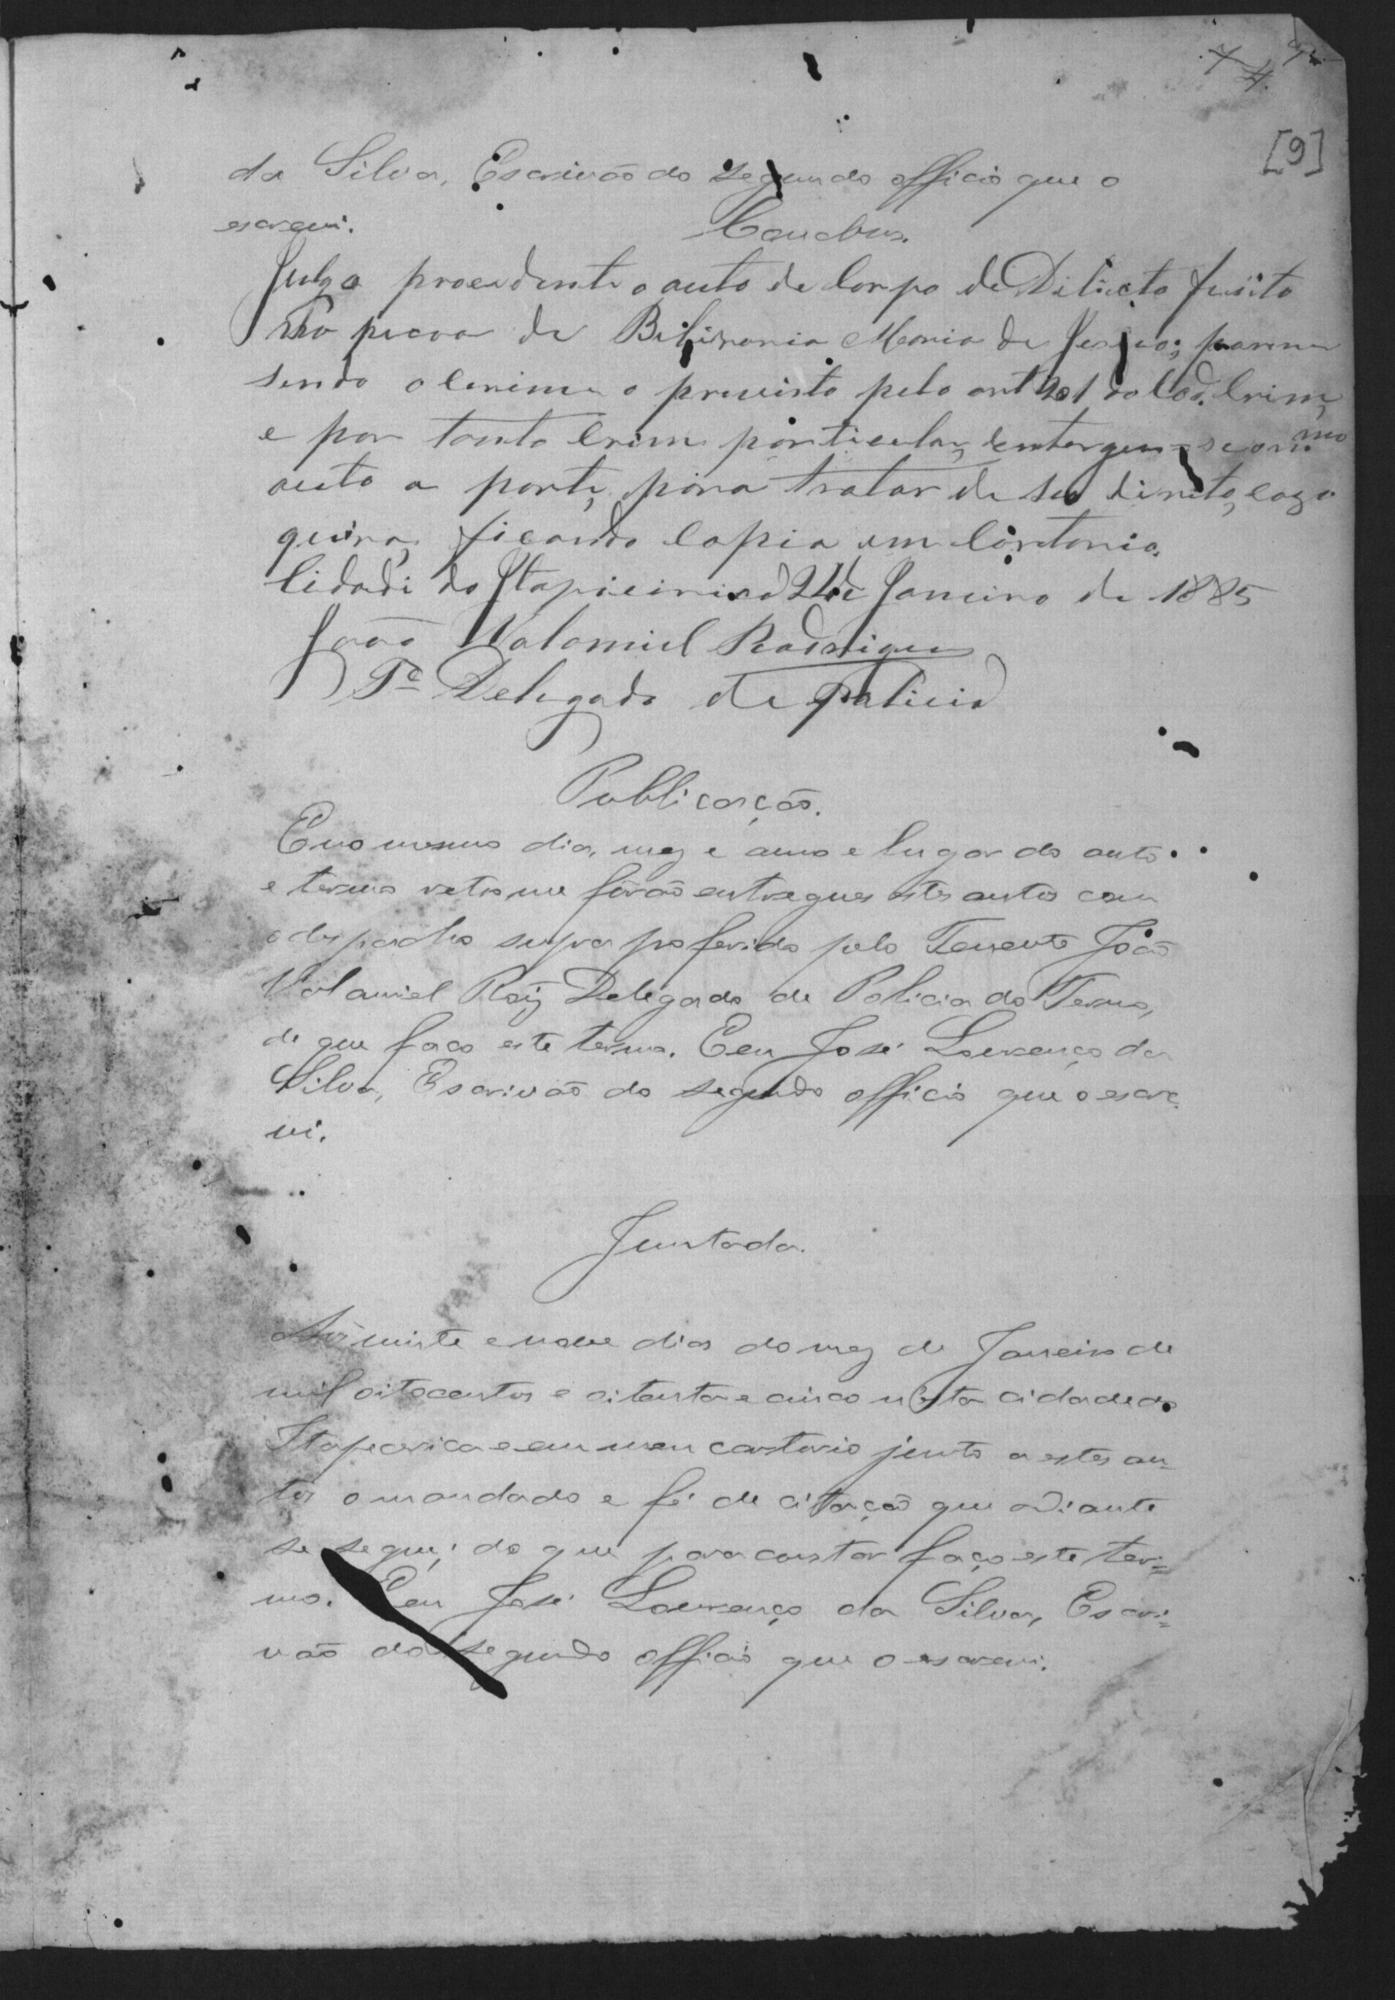 [9]
da Silva, Escrivão do segundo officio que o
escrevi. Concluzos.
Julgo procedente o auto de Corpo de Dilicto feiito
na pecoa de Bibirania Maria de Jesus; porem
sendo o Crime o previsto pelo art 201 do Cod. Crim,
e por tanto Crim particular, Entergue-se o m.mo
auto a parte, para tratar de seo direito, cazo
queira, ficando Copia em Cartorio.
Cidade do Itapicirica 24 de Janeiro de 1885
João Valamiel Rodrigues
Te Delegado de Policia
Publicação.
E no mesmo dia, mez e anno e lugar do auto
e termo retro me forão entregues estes autos com
o despacho supra proferido pelo Tenente João
Valamiel Roiz Delegado de Policia do Termo,
de que faço este termo. Eeu José Lourenço da
Silva, Escrivão do segundo officio que o escre
vi.
Juntada.
Aos vinte e nove dias do mez de Janeiro de
mil oitocentos e oitenta e cinco n'esta cidade de
Itapecerica e em meu cartorio junto a estes au=
tos o mandado e fé de citação que adiante
se segue; do que para constar faço este ter=
mo. Eeu José Lourenço da Silva, Escri=
vão do segundo officio que o escrevi.